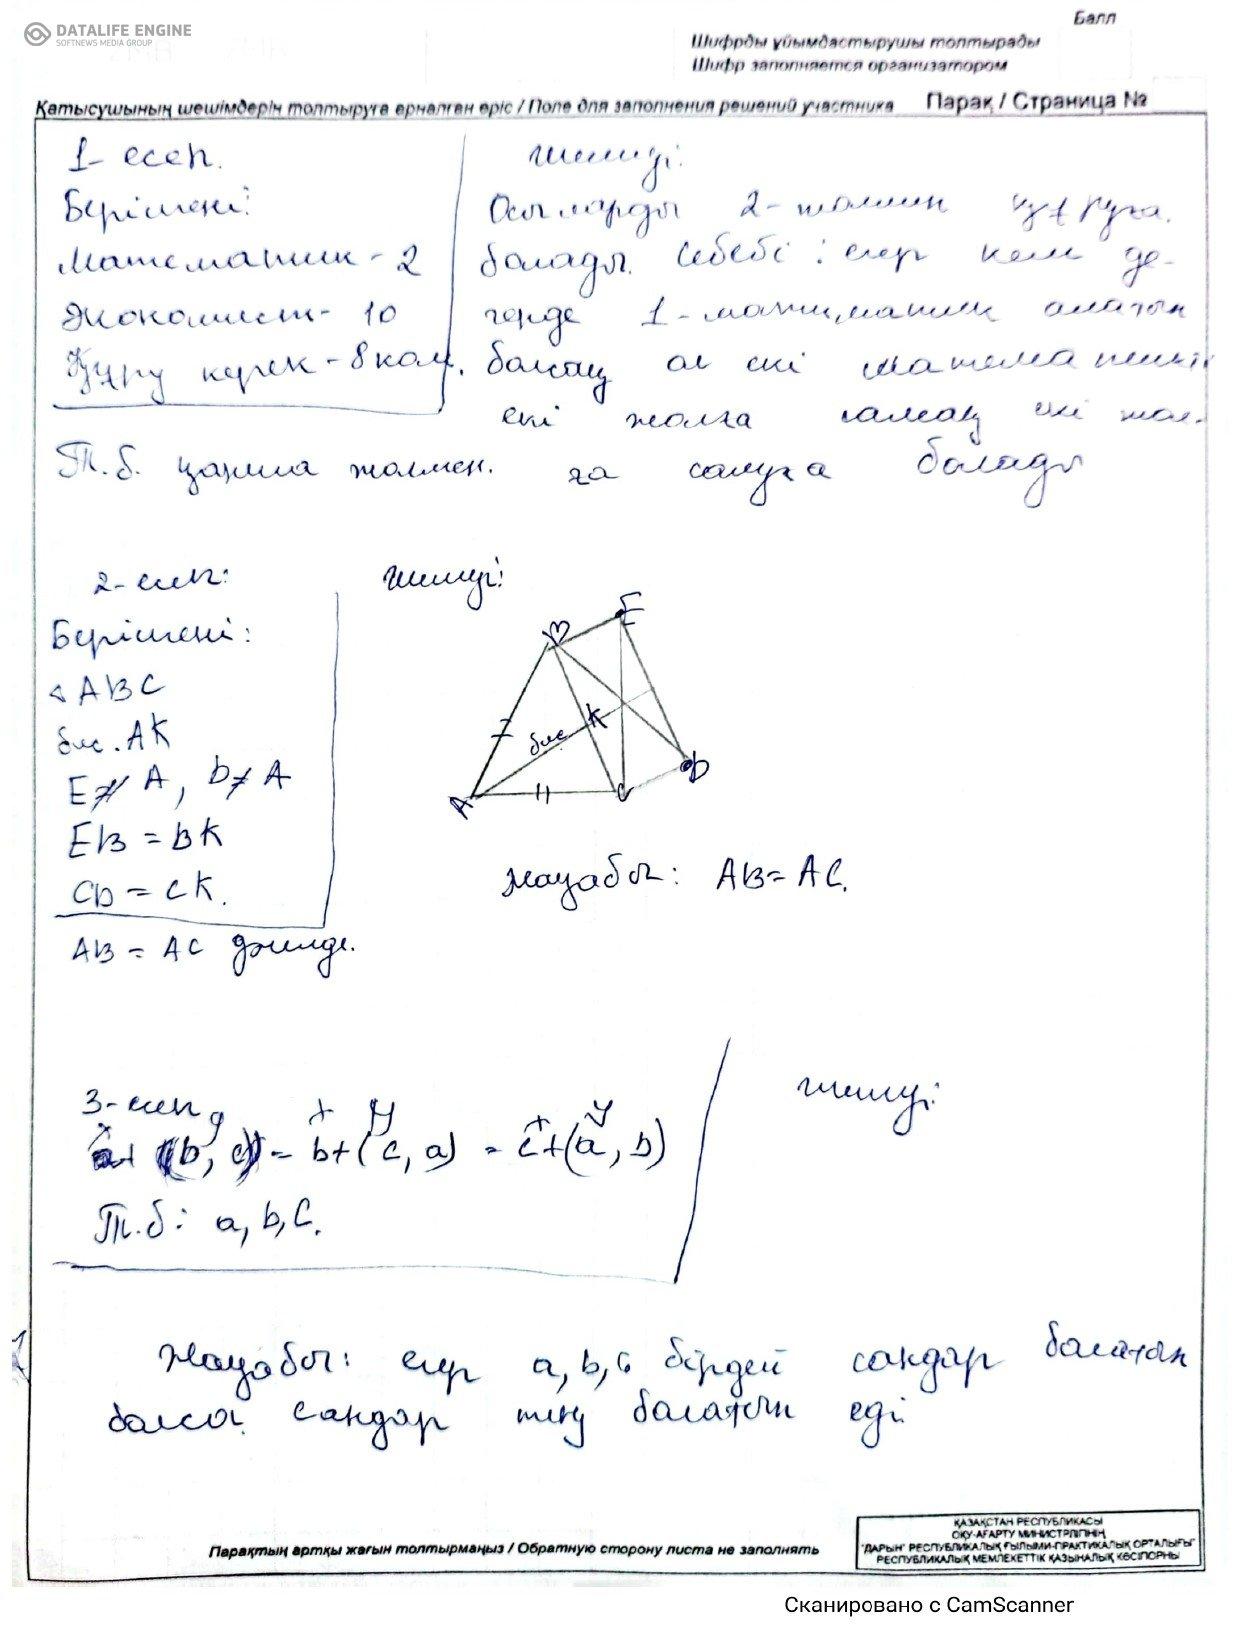 DATALIFE ENGINE
SOFTNEWS MEDIA GROUP
Балл
Шифрды ұйымдастырушы толтырады
Шифр заполняется организатором
Қатысушының шешімдерін толтыруға арналған өріс / Поле для заполнения решений участника
Парақ / Страница №
1- есеп.
Берілгені:
Математик - 2
Экономист - 10
Құру керек - 8 ком.
Т.б. қанша жолмен.
Шешуі:
Осыларды 2-жолмен құруға
болады. Себебі: егер кем де-
генде 1- математик алатын
болсақ ал екі математикті
екі жолға салсақ екі жол-
ға салуға болады
2- есеп:
Берілгені:
ABC
бис. AK
E≠A, D≠A
EB = BK
CD = CK.
AB = AC дәлелде.
Шешуі:
E
B
K
бис.
A
C
D
Жауабы: AB = AC.
3- есеп
x y x y
b+(c,a) = c+(a,b)
Т.б: a, b, c.
Шешуі:
Жауабы: егер a, b, c бірдей сандар болатын
болса сандар тең болатын еді
Парақтың артқы жағын толтырмаңыз / Обратную сторону листа не заполнять
ҚАЗАҚСТАН РЕСПУБЛИКАСЫ
ОҚУ-АҒАРТУ МИНИСТРЛІГІНІҢ
"ДАРЫН" РЕСПУБЛИКАЛЫҚ ҒЫЛЫМИ-ПРАКТИКАЛЫҚ ОРТАЛЫҒЫ"
РЕСПУБЛИКАЛЫҚ МЕМЛЕКЕТТІК ҚАЗЫНАЛЫҚ КӘСІПОРНЫ
Сканировано с CamScanner